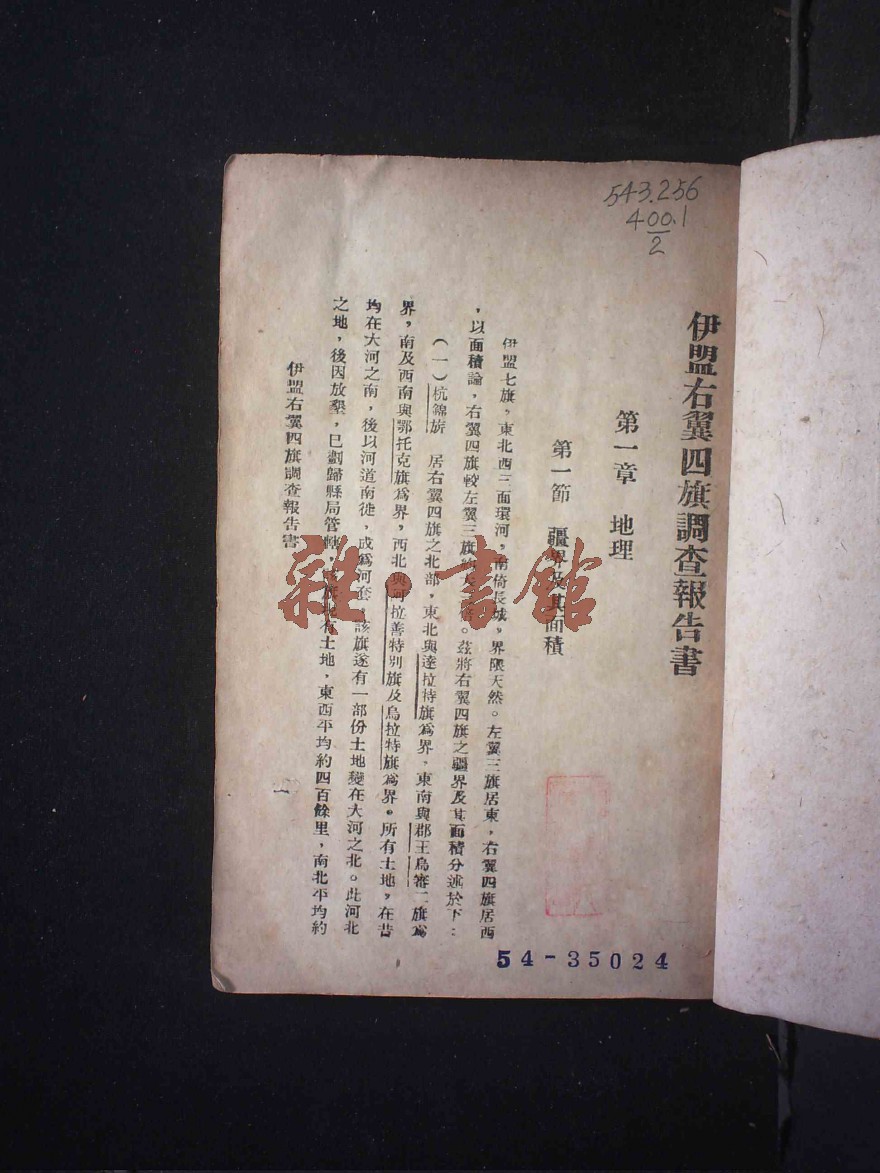 543.256
400.1
2
伊盟右翼四旗調查報告書
第一章　地理
第一節　疆界及其面積
伊盟七旗，東北西三面環河，南倚長城，界限天然。左翼三旗居東，右翼四旗居西
，以面積論，右翼四旗較左翼三旗約大倍。茲將右翼四旗之疆界及其面積分述於下：
（一）杭錦旂　居右翼四旗之北部，東北與達拉特旗爲界，東南與郡王烏審二旗爲
界，南及西南與鄂托克旗爲界，西北與阿拉善特別旗及烏拉特旗爲界。所有土地，在昔
均在大河之南，後以河道南徙，成爲河套，該旗遂有一部份土地變在大河之北。此河北
之地，後因放墾，已劃歸縣局管轄，旗地有土地，東西平均約四百餘里，南北平均約
伊盟右翼四旗調查報告書
一
雜·書館
54-35024